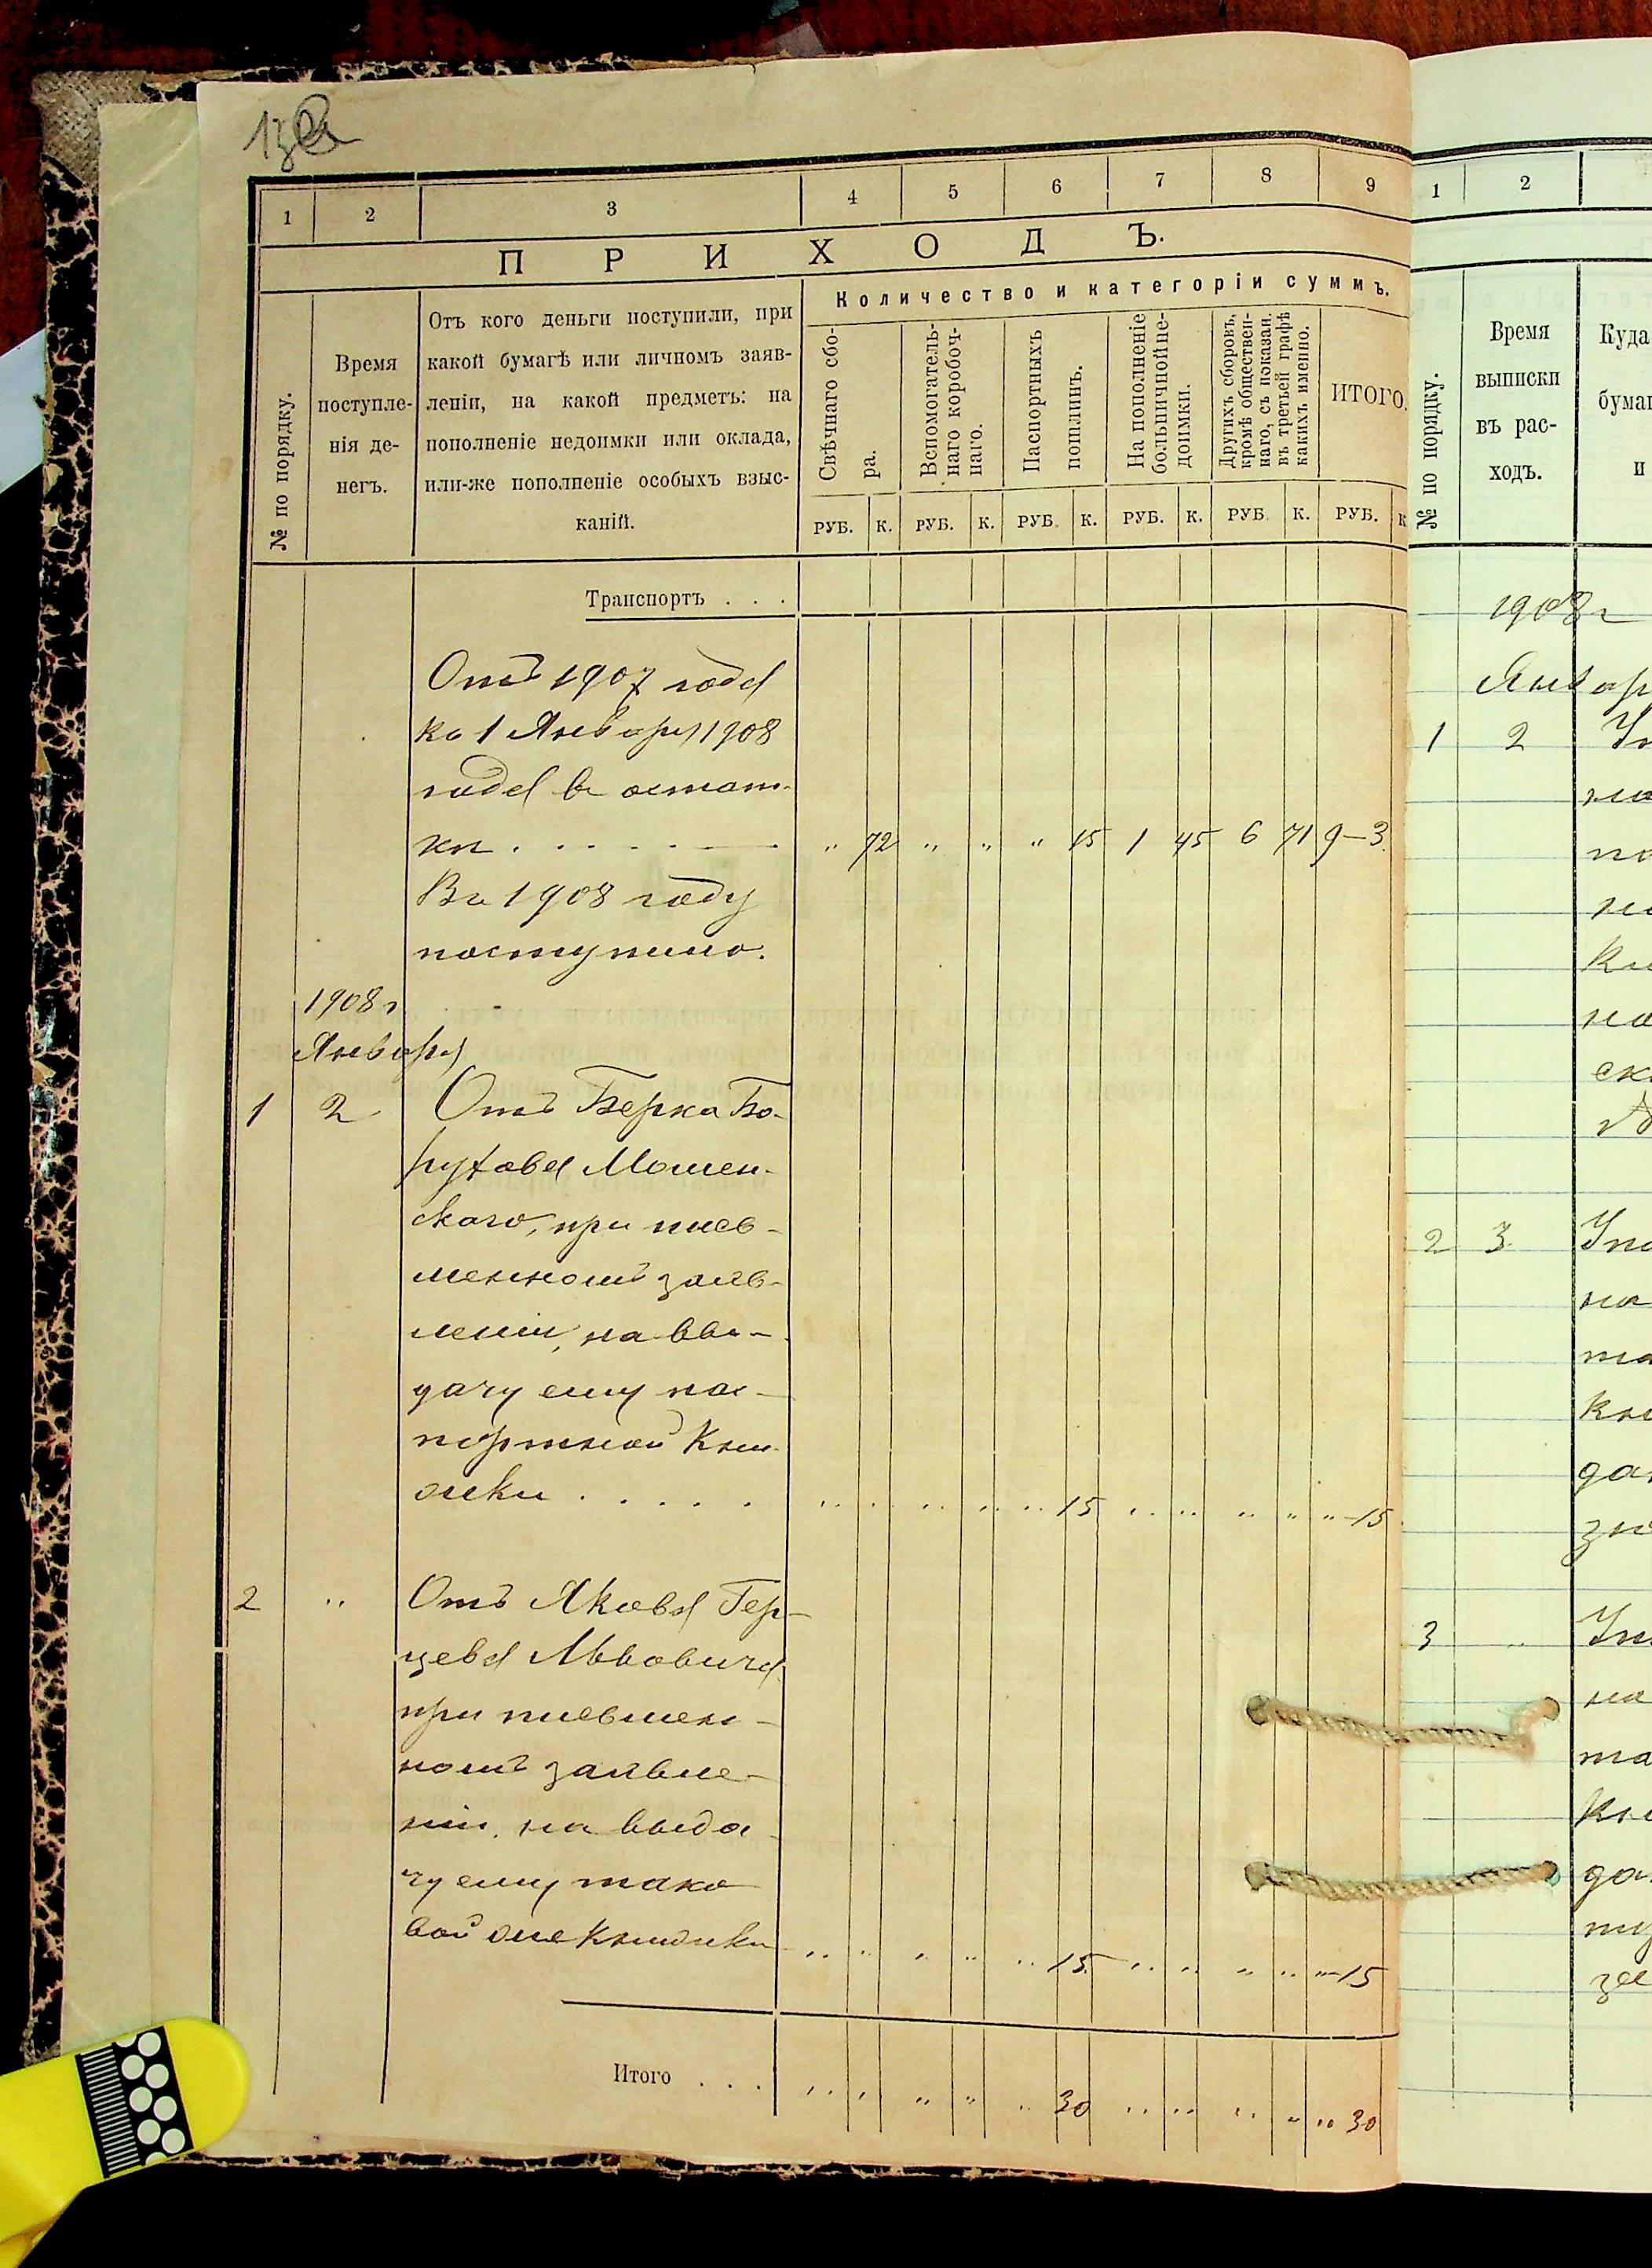 1 2 3 4 5 6 7 8 9
ПРИХОДЪ.
№ по порядку.
Время
поступле-
нія де-
негъ.
Отъ кого деньги поступили, при
какой бумагѣ или личномъ заяв-
леніи, на какой предметъ: на
пополненіе недоимки или оклада,
или-же пополненіе особыхъ взыс-
каній.
Количество и категоріи суммъ.
Свѣчнаго сбо-
ра.
Вспомогатель-
наго коробоч-
наго.
Паспортныхъ
пошлинъ.
На пополненіе
больничной не-
доимки.
Другихъ сборовъ,
кромѣ обществен-
наго, съ показан.
въ третьей графѣ
какихъ именно.
ИТОГО.
РУБ. К. РУБ. К. РУБ. К. РУБ. К. РУБ. К. РУБ. К
Транспортъ . . .
Отъ 1907 года
къ 1 Января 1908
года въ остат-
кѣ . . . . . " 72 " " " 15 1 45 6 71 9—3
Въ 1908 году
поступило.
1908 г
Января
1 2 Отъ Берка Бо-
рухова Мошен-
скаго, при пись-
менномъ заяв-
леніи, на вы-
дачу ему пас-
портной книж-
жки . . . . . " " " " " 15 " " " " "—15
2 " Отъ Якова Гер-
цева Львовича
при письмен-
номъ заявле-
ніи, на выда
чу ему тако
вой же книжки " " " " " 15 " " " " "—15
Итого . . . " " " " " 30 " " " " " 30
1 2
№ по порядку.
Время
выписки
въ рас-
ходъ.
Куда
бумаг
и
1908 г
Январ
1 2
на
ка
ск
2 3
на
та
кн
да
3 "
на
та
кн
да